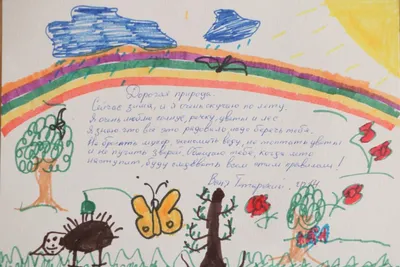 Дорогая природа.
Сейчас зима, и я очень скучаю по лету.
Я очень люблю солнце, речку, цветы и лес
Я знаю что всё это надо беречь тебя.
Не бросать мусор, экономить воду, не топтать цветы
и не пугать зверей. Обещаю тебе, когда лето
наступит, буду следовать всем этим правилам!
Ваня